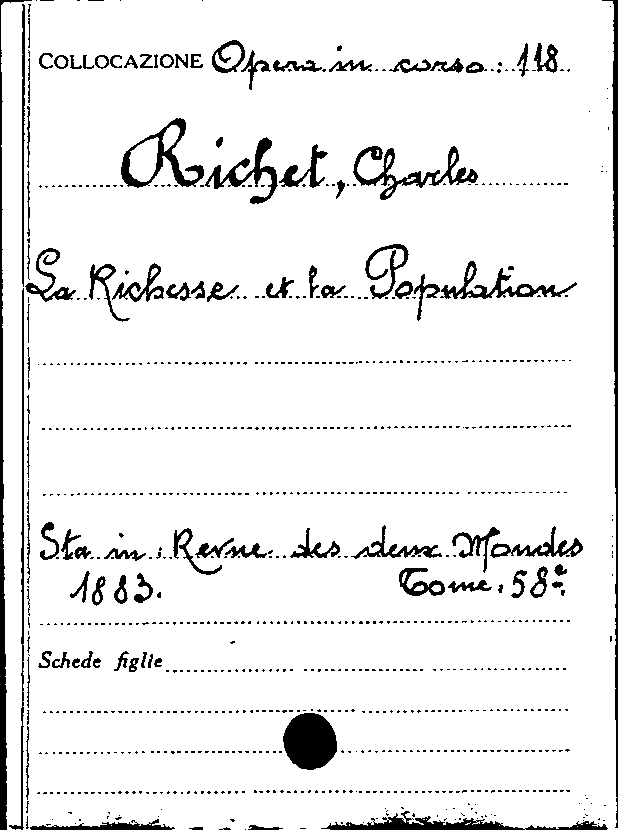 COLLOCAZIONE Opera in corso: 118
Richet, Charles
La Richesse et la Population
Sta in: Revue des deux Mondes
1883. Tome. 58e.
Schede figlie